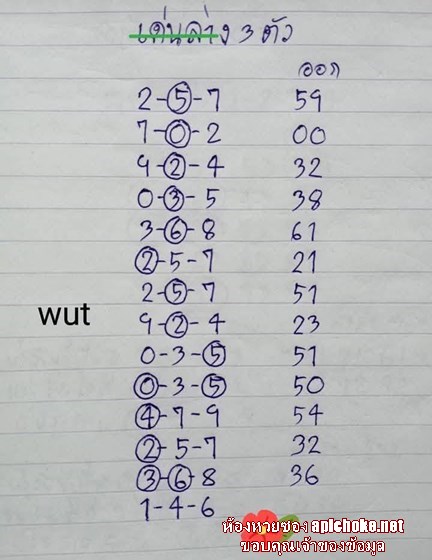 เด่นล่าง 3 ตัว
ออก
2-5-7 59
7-0-2 00
9-2-4 32
0-3-5 38
3-6-8 61
2-5-7 21
2-5-7 51
9-2-4 23
0-3-5 51
0-3-5 50
4-7-9 54
2-5-7 32
3-6-8 36
1-4-6
wut
ห้องหวยซอง apichoke.net
ขอบคุณเจ้าของข้อมูล